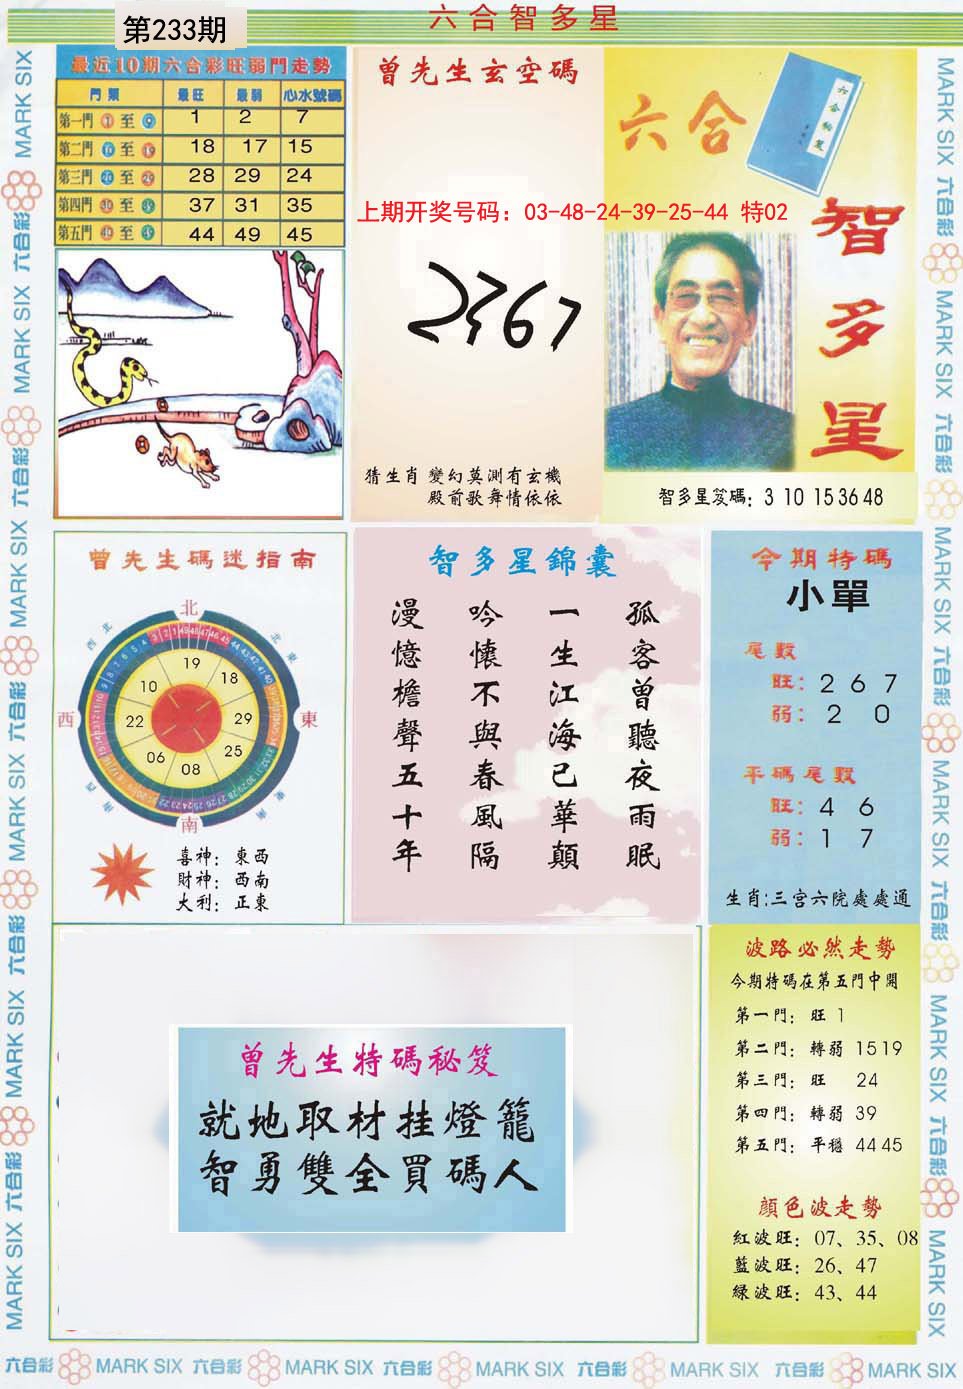 六合智多星
第233期
最近10期六合彩旺弱門走勢
門類 最旺 最弱 心水號碼
第一門 1 至 9 1 2 7
第二門 10 至 19 18 17 15
第三門 20 至 29 28 29 24
第四門 30 至 39 37 31 35
第五門 40 至 49 44 49 45
曾先生玄空碼
上期开奖号码：03-48-24-39-25-44 特02
2367
猜生肖 變幻莫測有玄機
殿前歌舞情依依
六合
智多星
智多星笈碼: 3 10 15 36 48
曾先生碼迷指南
北
西北
東北
西
東
西南
東南
南
19
18
29
25
08
06
22
10
喜神: 東西
財神: 西南
大利: 正東
智多星錦囊
孤客曾聽夜雨眠
一生江海已華顛
吟懷不與春風隔
漫憶檐聲五十年
今期特碼
小單
尾數
旺: 2 6 7
弱: 2 0
平碼尾數
旺: 4 6
弱: 1 7
生肖:三宫六院處處通
曾先生特碼秘笈
就地取材挂燈籠
智勇雙全買碼人
波路必然走勢
今期特碼在第五門中開
第一門: 旺 1
第二門: 轉弱 15 19
第三門: 旺 24
第四門: 轉弱 39
第五門: 平穩 44 45
顔色波走勢
紅波旺: 07、35、08
藍波旺: 26、47
緑波旺: 43、44
六合彩 MARK SIX 六合彩 MARK SIX 六合彩 MARK SIX 六合彩 MARK SIX 六合彩 MARK SIX